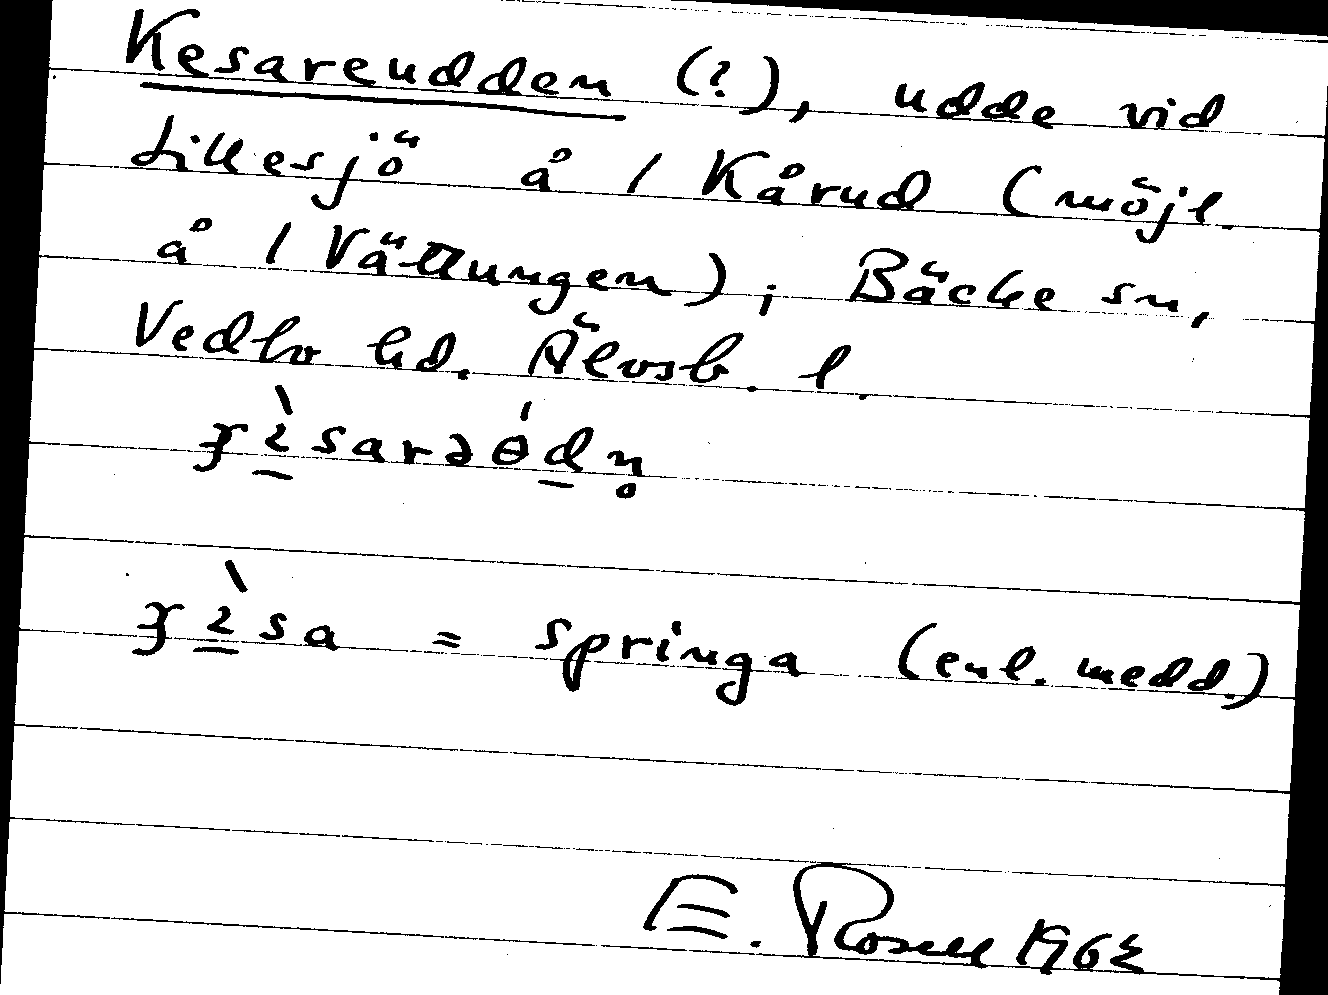 Kesareudden (?), udde vid
Lillesjö å / Kårud (möjl.
å / Vättungen); Bäcke sn,
Vedbo hd. Älvsb. l.
sarəɵ́dn̥
sa = springa (enl. medd.)
E. Rosell 1962